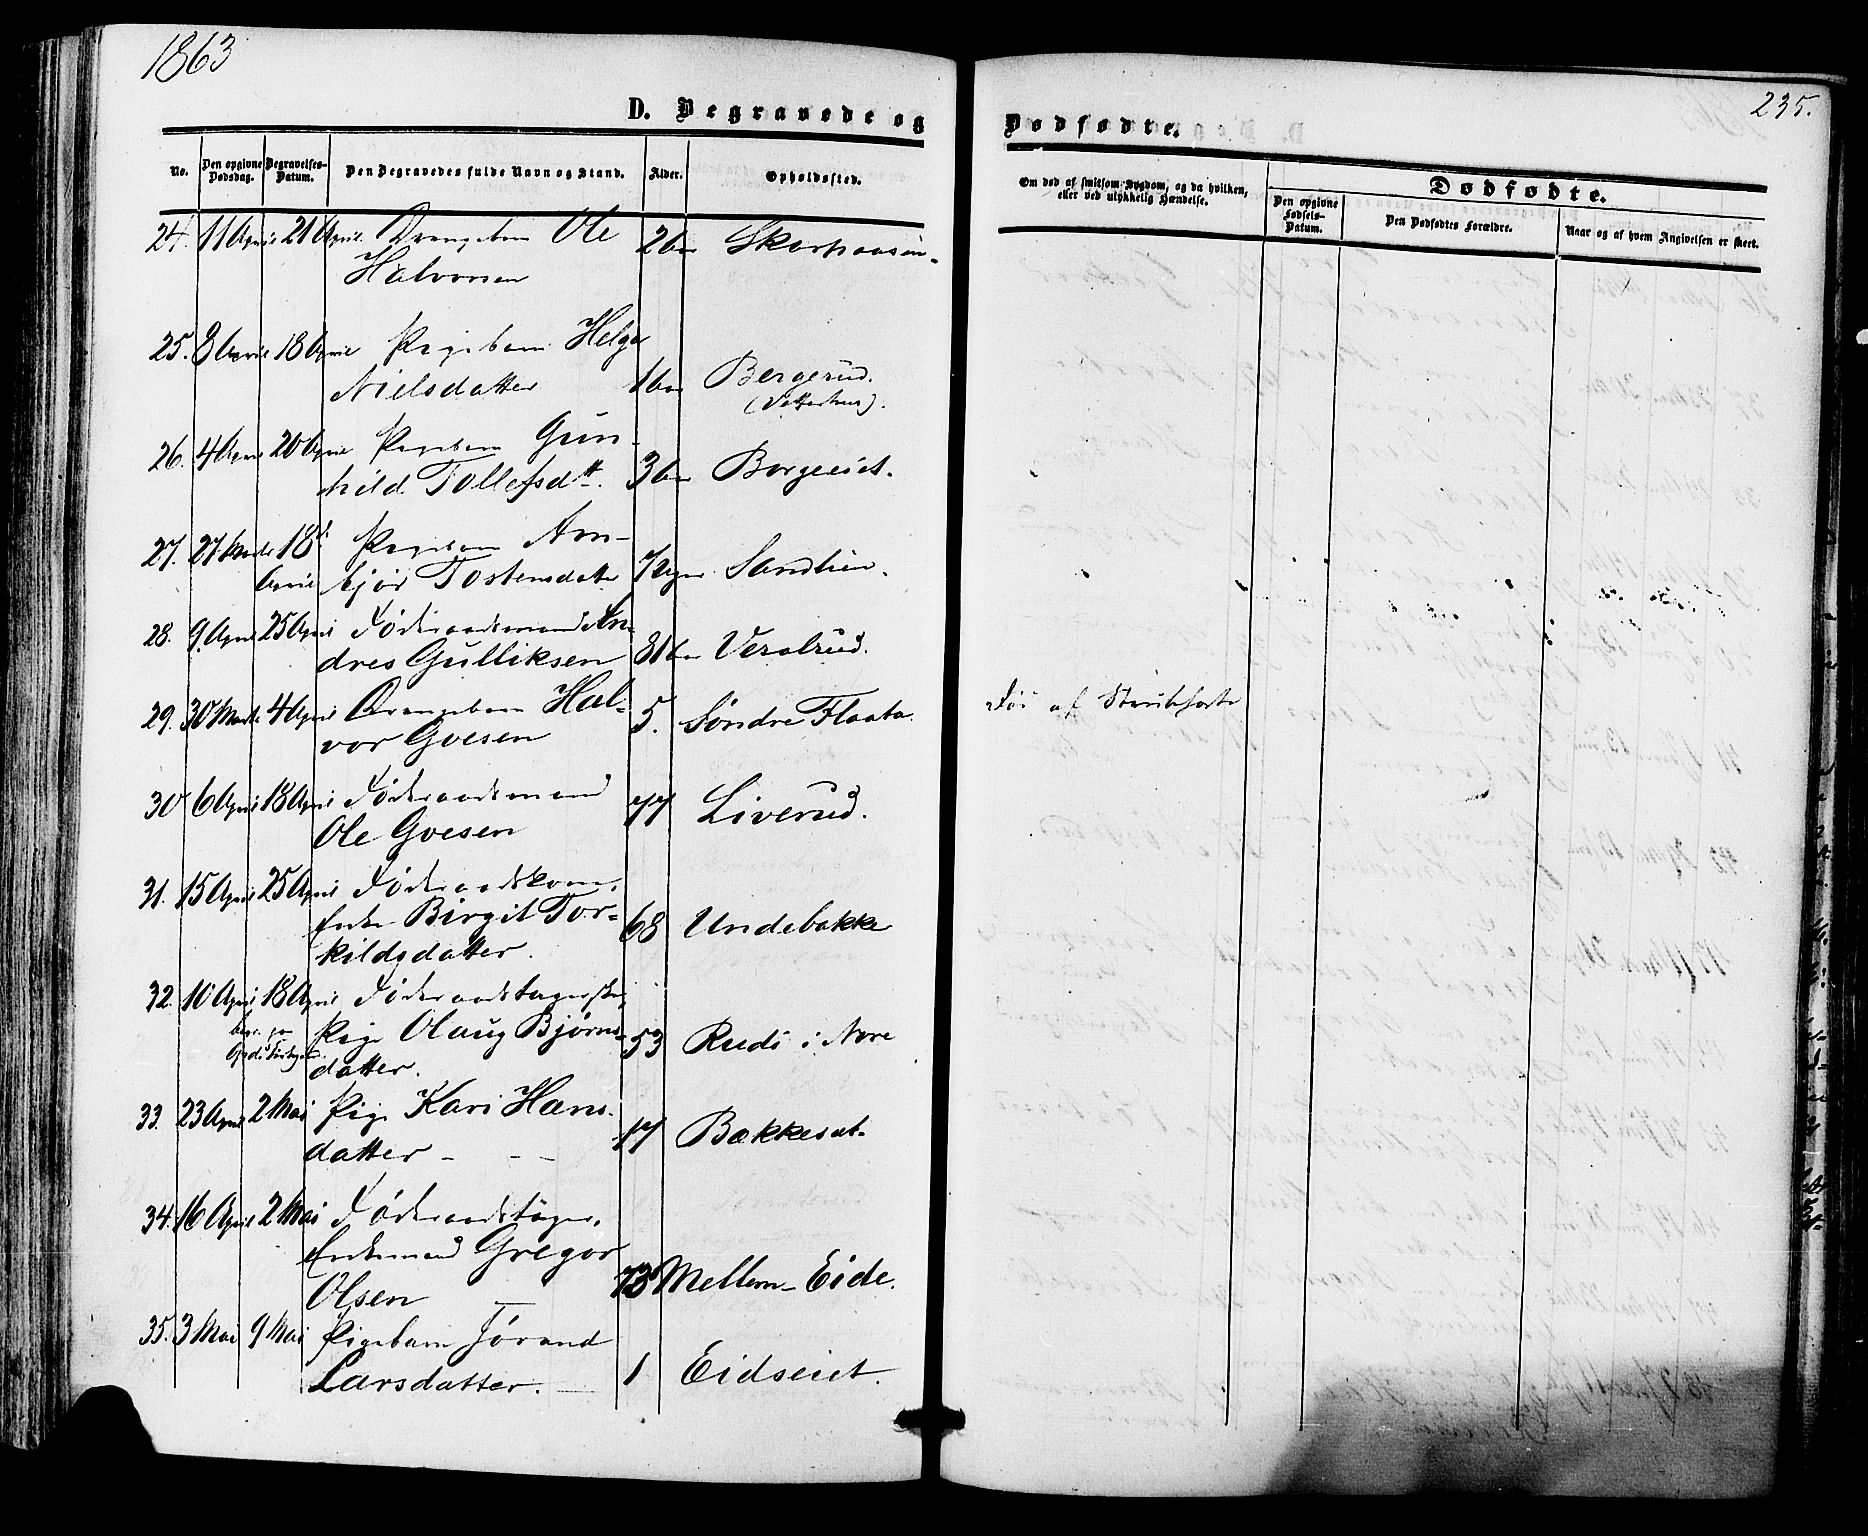 1863
D. Begravede og
No. Den opgivne Dødsdag. Begravelses-Datum. Den Begravedes fulde Navn og Stand. Alder. Opholdssted.
24. 11 April 21 April Drengebarn Ole
Halvorsen 2
25. 8 April 18 April Pigebarn Helga
Nielsdatter 1 Bergerud.
26. 4 April 20 April Pigebarn Gun-
hild Tollefsdtt. 3 Borgeeiet.
27. 27 Marts 18 April Pigebarn Arn-
bjør Tostensdatter Sandlien.
28. 9 April 25 April Føderaadsmand An-
dres Gulliksen 81 Veralrud.
29. 30 Marts 4 April Drengebarn Hal-
vor Gvesen 5. Søndre Flaata.
30 6 April 18 April Føderaadsmand
Ole Gvesen 77 Liverud.
31. 15 April 25 April Føderaadskone,
Enke Birgit Tor-
kildsdatter. 68 Undebakke
32. 10 April 18 April Føderaadstagerske,
begr. paa
Opdal Kirkegaard. Pige Olaug Bjørns-
datter. 53 Rudi i Nore
33. 23 April 2 Mai Pige Kari Hans-
datter 17 Bækkeset.
34. 16 April 2 Mai Føderaadstager,
Enkemand Gregor
Olsen 73 Mellem-Eide.
35. 3 Mai 9 Mai Pigebarn Jørand
Larsdatter. 1 Eidseiet.
235.
Dødfødte.
Om død af smitsom Sygdom, og da hvilken, eller ved ulykkelig Hændelse.
Dødfødte.
Den opgivne Fødsels-Datum. Den Dødfødtes Forældre. Naar og af hvem Angivelsen er skeet.
Død af Strubehoste